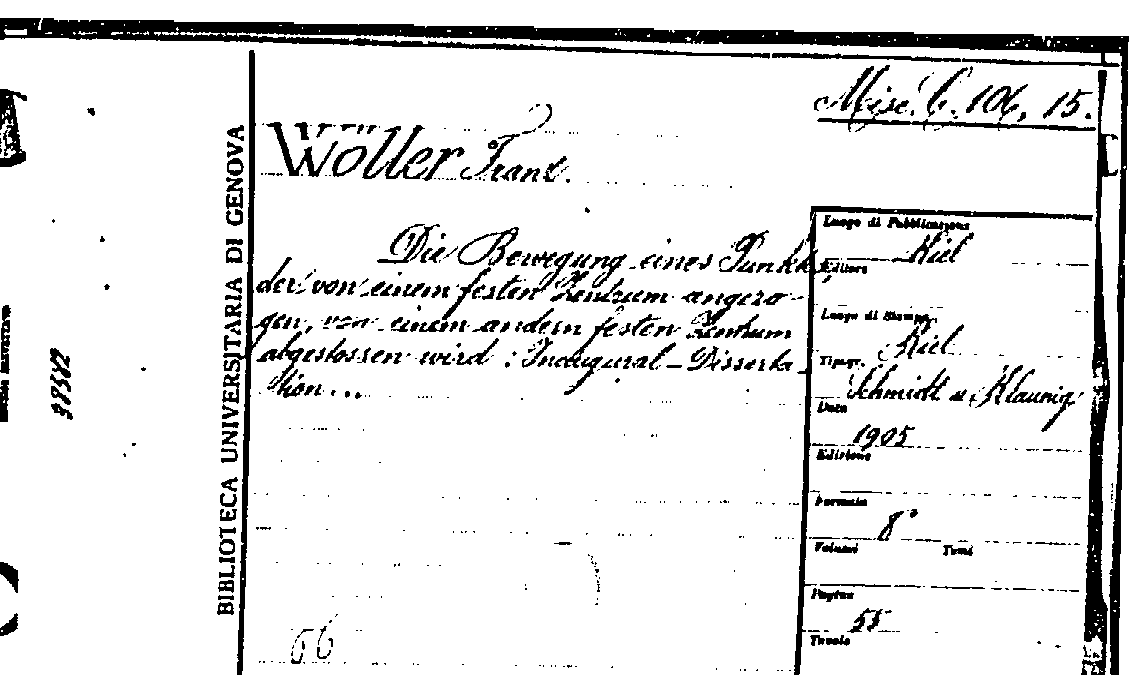 Misc. C. 106, 15.
Wöller Franz.
Die Bewegung eines Punktes,
der von einem festen Zentrum angezo-
gen, von einem andern festen Zentrum
abgestossen wird : Inaugural-Disserta-
tion...
BIBLIOTECA UNIVERSITARIA DI GENOVA
38582
Luogo di Pubblicazione
Kiel
Editore
Luogo di Stampa
Kiel
Tipogr.
Schmidt u. Klaunig
Data
1905
Edizione
Formato
8°
Volumi Tomi
Pagine
55
Tavole
66